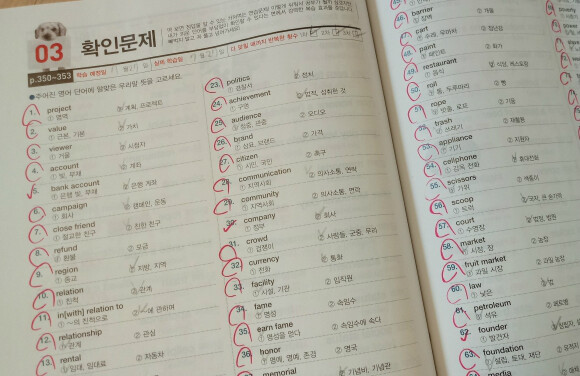 03 확인문제
p.350~353
주어진 영어 단어에 알맞은 우리말 뜻을 고르세요.
1. project
① 영역 ② 계획, 프로젝트
2. value
① 근본, 기본 ② 가치
3. viewer
① 거울 ② 시청자
4. account
① 빚, 부채 ② 계좌
5. bank account
① 은행 빚, 부채 ② 은행 계좌
6. campaign
① 회사 ② 캠페인, 운동
7. close friend
① 절교한 친구 ② 친한 친구
8. refund
① 환불 ② 요금
9. region
① 종교 ② 지방, 지역
10. relation
① 친척 ② 관계
11. in[with] relation to
② ~에 관하여
12. relationship
① 관계 ② 관심
13. rental
① 임대, 임대료 ② 자동차
23. politics
① 경찰서 ② 정치
24. achievement
① 구연 ② 업적, 성취한 것
25. audience
① 청중, 관중 ② 오디오
26. brand
① 상표, 브랜드 ② 가격
27. citizen
① 시민, 국민 ② 축구
28. communication
① 지역사회 ② 의사소통, 연락
29. community
① 지역사회 ② 의사소통, 연락
30. company
① 정부 ② 회사
31. crowd
① 겁쟁이 ② 사람들, 군중, 무리
32. currency
① 전화 ② 통화
33. facility
① 시설, 기관 ② 임직원
34. fame
① 명성 ② 속임수
35. earn fame
① 명성을 얻다 ② 속임수에 속다
36. honor
① 명예, 영예, 존경 ② 영국
memorial
② 기념비, 기념물
46. barrier
① 장벽
47. cart
① 수레, 우마차
48. paint
① 페인트
49. restaurant
① 음식 ② 식당, 레스토랑
50. roll
① 통, 두루마리 ② 빵
51. rope
① 밧줄, 로프 ② 기둥
52. trash
① 쓰레기 ② 재활용
53. appliance
① 기기 ② 지원자
54. cellphone
① 감옥 전화 ② 휴대전화
55. scissors
① 가위
56. scoop
① 도럭
57. court
① 수영장
58. market
① 시장, 장 ② 농장
59. fruit market
① 과일 시장 ② 과일 농장
60. law
① 낮은 ② 법
61. petroleum
① 석유
62. founder
① 발견자
63. foundation
① 설립, 토대, 재단
media